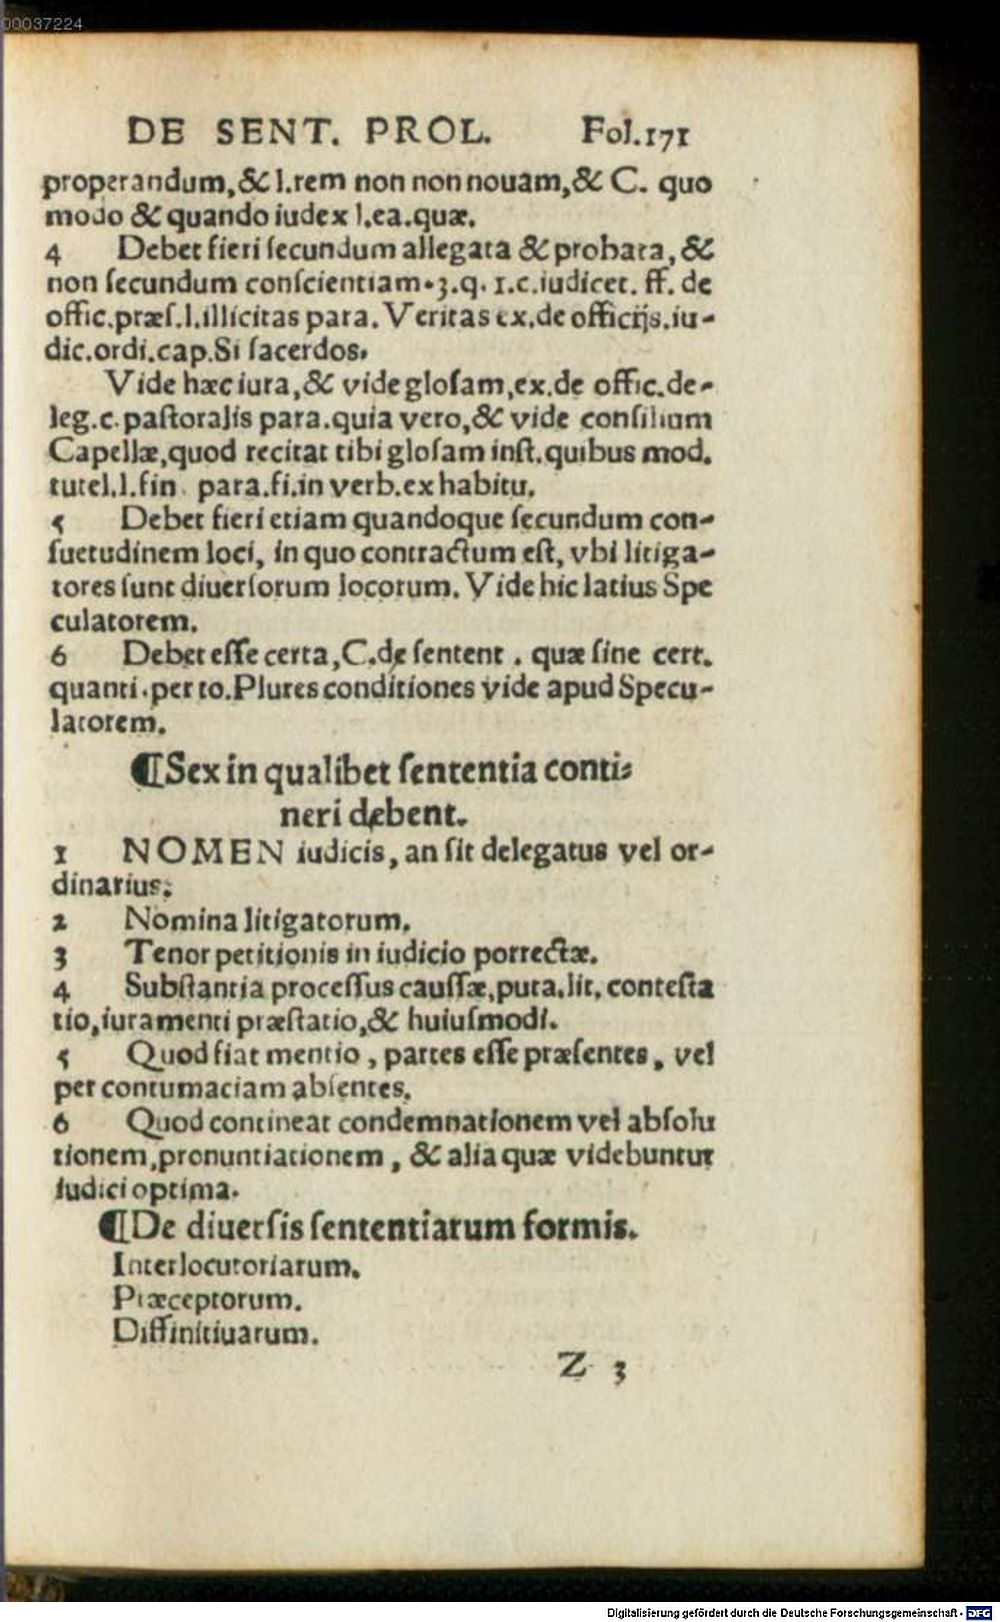 00037224
DE SENT. PROL. Fol.171
properandum,& l.rem non non nouam,& C. quo
modo & quando iudex l.ea.quæ.
4 Debet fieri ſecundum allegata & probata, &
non ſecundum conſcientiam.3.q.1.c.iudicet. ff. de
offic.præſ.l.illicitas para. Veritas ex.de officijs.iu-
dic.ordi.cap.Si ſacerdos.
Vide hæc iura,& vide gloſam,ex.de offic.de-
leg.c.paſtoralis para.quia vero,& vide conſilium
Capellæ,quod recitat tibi gloſam inſt.quibus mod.
tutel.l.fin para.fi.in verb.ex habitu.
5 Debet fieri etiam quandoque ſecundum con-
ſuetudinem loci, in quo contractum eſt, vbi litiga-
tores ſunt diuerſorum locorum. Vide hic latius Spe
culatorem.
6 Debet eſſe certa,C.de ſentent . quæ ſine cert.
quanti.per to.Plures conditiones vide apud Specu-
latorem.
¶Sex in qualibet ſententia conti-
neri debent.
1 NOMEN iudicis, an ſit delegatus vel or-
dinarius.
2 Nomina litigatorum.
3 Tenor petitionis in iudicio porrectæ.
4 Subſtantia proceſſus cauſſæ,puta.lit. conteſta
tio,iuramenti præſtatio,& huiuſmodi.
5 Quod fiat mentio , partes eſſe præſentes, vel
per contumaciam abſentes.
6 Quod contineat condemnationem vel abſolu
tionem,pronuntiationem , & alia quæ videbuntur
iudici optima.
¶De diuerſis ſententiarum formis.
Interlocutoriarum.
Præceptorum.
Diffinitiuarum.
Z 3
Digitalisierung gefördert durch die Deutsche Forschungsgemeinschaft - DFG